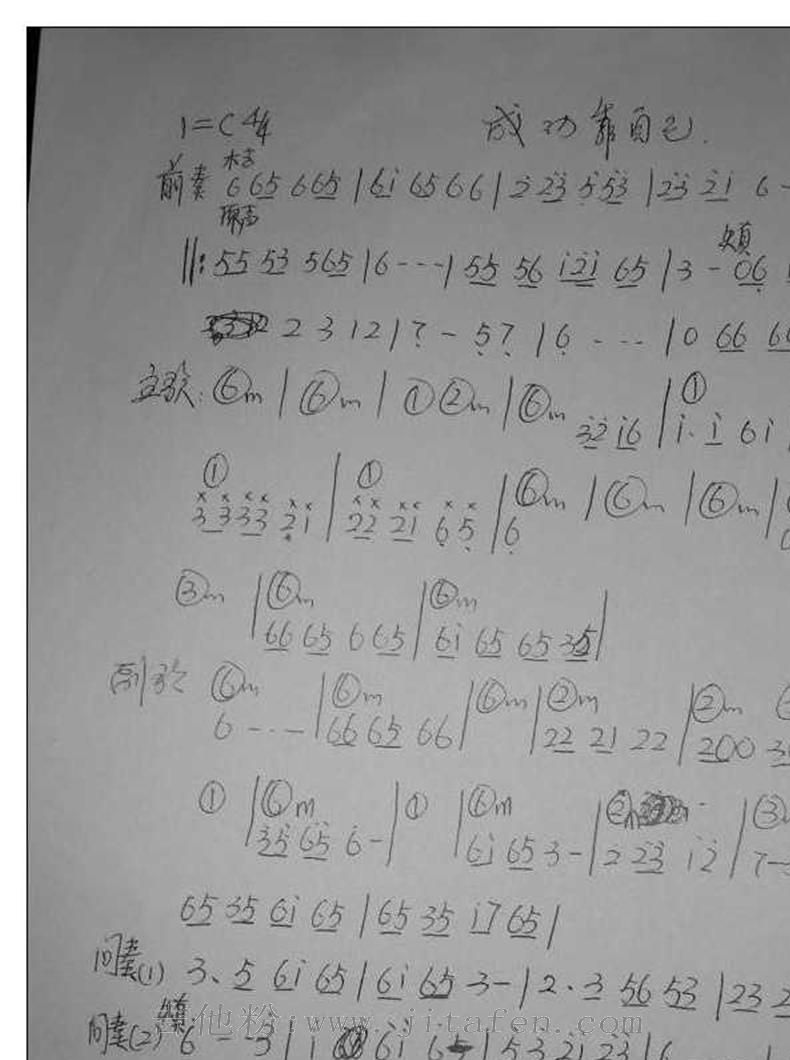 1=C 4/4 成功靠自己.
木吉
前奏 6 65 6 65 | 6i 65 66 | 2 23 5 53 | 23 21 6 -
||: 55 53 565 | 6 - - - | 55 56 i2i 65 | 3 - 06
2 3 12 | 7 - 57 | 6 - - - | 0 66
主歌: ⑥m | ⑥m | ① ②m | ⑥m 32 i6 | ① i. i 6i
① | ① | ⑥m | ⑥m | ⑥m |
3 3 33 21 | 22 21 65 | 6
③m | ⑥m | ⑥m
66 65 665 | 6i 65 65 35 |
副歌 ⑥m | ⑥m | ⑥m | ②m | ②m
6 - - - | 66 65 66 | 22 21 22 | 200
① | ⑥m | ① | ⑥m | ② | ③
35 65 6 - | 6i 65 3 - | 2 23 i2 | 7 -
65 35 6i 65 | 65 35 i7 65 |
间奏(1) 3. 5 6i 65 | 6i 65 3 - | 2. 3 56 53 | 23
间奏(2) 6 - - 3 | i 6i 6 | 53 21 23 | 6
吉他粉:www.jitafen.com